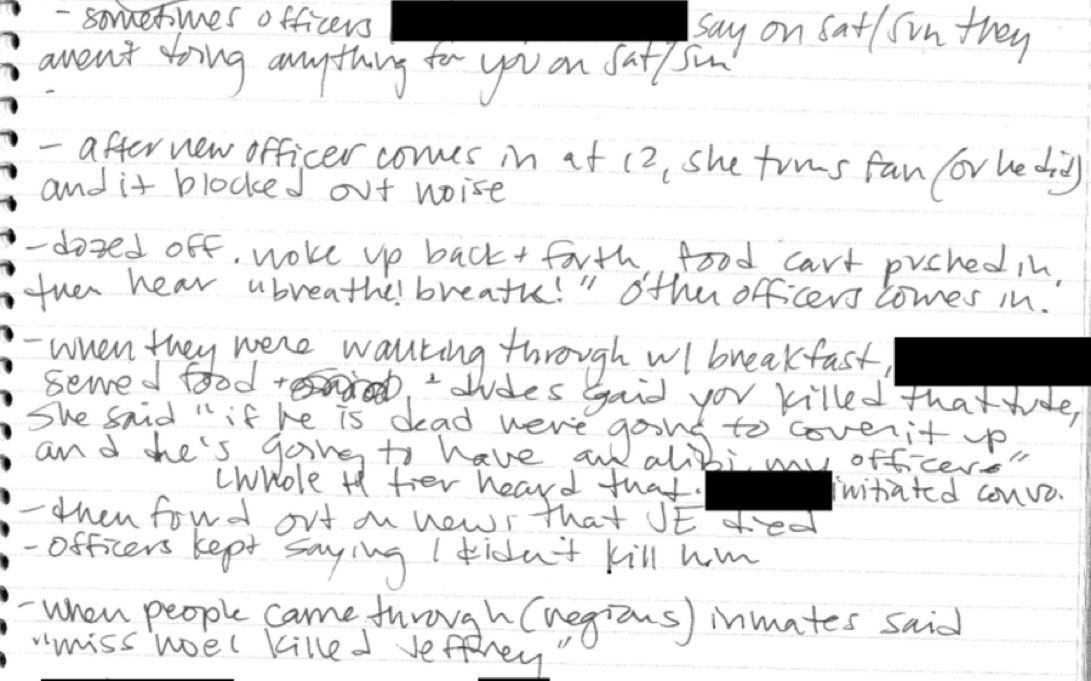 - sometimes officers say on sat/sun they
arent doing anything for you on sat/sun
-
- after new officer comes in at 12, she turns fan (or he did)
and it blocked out noise
- dozed off. woke up back + forth, food cart pushed in,
then hear "breathe! breathe!" other officers comes in.
- when they were walking through w/ breakfast,
served food + + dudes said you killed that dude,
she said "if he is dead were going to cover it up
and he's going to have an alibi, my officers"
(whole H tier heard that. initiated convo.
- then found out on news that JE died
- officers kept saying I didn't kill him
- when people came through (regions) inmates said
"miss Noel killed Jeffrey"